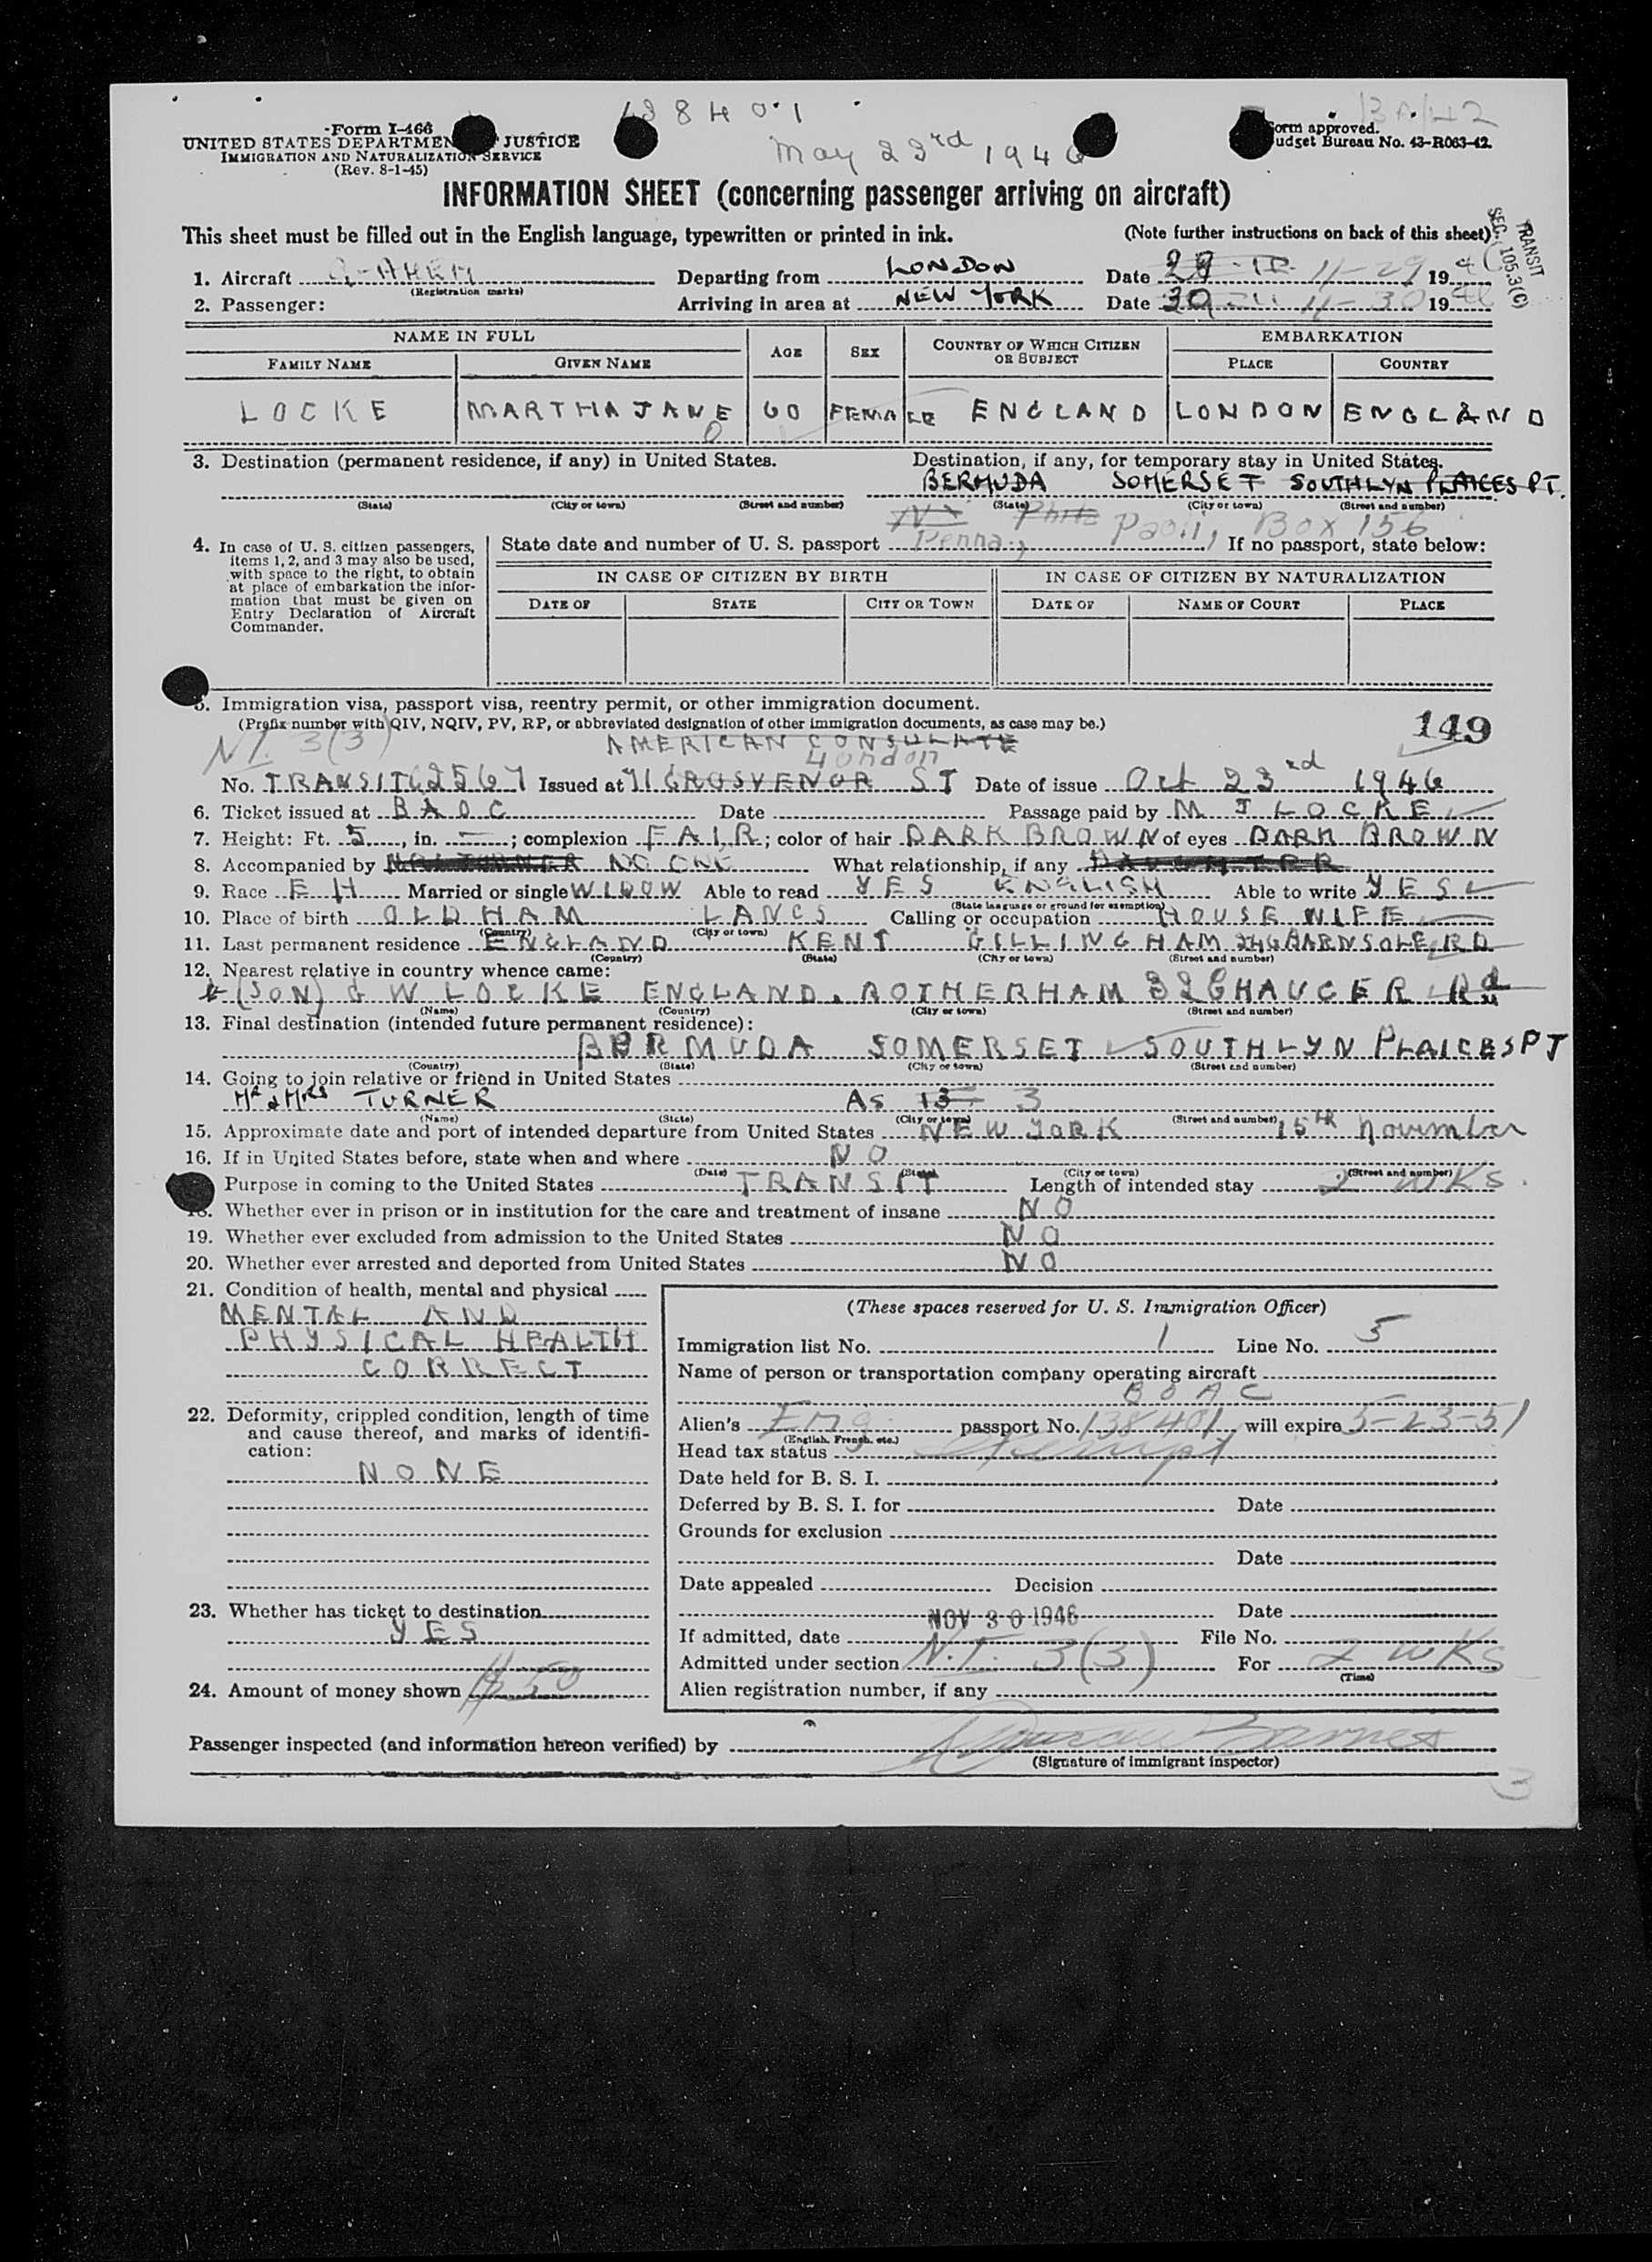 138401
BA/42
Form I-466
UNITED STATES DEPARTMENT JUSTICE
IMMIGRATION AND NATURALIZATION SERVICE
(Rev. 8-1-45)
May 23rd 1946
Form approved.
Budget Bureau No. 43-R063-42.
INFORMATION SHEET (concerning passenger arriving on aircraft)
This sheet must be filled out in the English language, typewritten or printed in ink. (Note further instructions on back of this sheet)
TRANSIT
SEC. 105.3(C)
1. Aircraft G-AHEM Departing from LONDON Date 29 11-29 1946
(Registration marks)
2. Passenger: Arriving in area at NEW YORK Date 30 11-30 1946
NAME IN FULL AGE SEX COUNTRY OF WHICH CITIZEN OR SUBJECT EMBARKATION
FAMILY NAME GIVEN NAME PLACE COUNTRY
LOCKE MARTHA JANE 60 FEMALE ENGLAND LONDON ENGLAND
3. Destination (permanent residence, if any) in United States. Destination, if any, for temporary stay in United States.
BERMUDA SOMERSET SOUTHLYN PLAICES PT.
(State) (City or town) (Street and number) (State) (City or town) (Street and number)
NY Phila Paoli, Box 156
4. In case of U. S. citizen passengers, items 1, 2, and 3 may also be used, with space to the right, to obtain at place of embarkation the information that must be given on Entry Declaration of Aircraft Commander.
State date and number of U. S. passport Penna., If no passport, state below:
IN CASE OF CITIZEN BY BIRTH IN CASE OF CITIZEN BY NATURALIZATION
DATE OF STATE CITY OR TOWN DATE OF NAME OF COURT PLACE
5. Immigration visa, passport visa, reentry permit, or other immigration document.
(Prefix number with QIV, NQIV, PV, RP, or abbreviated designation of other immigration documents, as case may be.)
149
NI 3(3) AMERICAN CONSULATE
London
No. TRANSIT 62567 Issued at 71 GROSVENOR ST Date of issue Oct 23rd 1946
6. Ticket issued at BAOC Date Passage paid by M J LOCKE
7. Height: Ft. 5, in. —; complexion FAIR; color of hair DARK BROWN of eyes DARK BROWN
8. Accompanied by MRS TURNER NO ONE What relationship, if any DAUGHTER
9. Race EH Married or single WIDOW Able to read YES ENGLISH Able to write YES
(State language or ground for exemption)
10. Place of birth OLDHAM LANCS Calling or occupation HOUSE WIFE
(Country) (City or town)
11. Last permanent residence ENGLAND KENT GILLINGHAM 246 BARNSOLE RD
(Country) (State) (City or town) (Street and number)
12. Nearest relative in country whence came:
(SON) G W LOCKE ENGLAND. ROTHERHAM 32 CHAUCER Rd
(Name) (Country) (City or town) (Street and number)
13. Final destination (intended future permanent residence):
BERMUDA SOMERSET SOUTHLYN PLAICES PT
(Country) (State) (City or town) (Street and number)
14. Going to join relative or friend in United States
Mr & Mrs TURNER As 13 3
(Name) (State) (City or town) (Street and number)
15. Approximate date and port of intended departure from United States NEW YORK 15th November
16. If in United States before, state when and where NO
(Date) (State) (City or town) (Street and number)
Purpose in coming to the United States TRANSIT Length of intended stay 2 WKS.
18. Whether ever in prison or in institution for the care and treatment of insane NO
19. Whether ever excluded from admission to the United States NO
20. Whether ever arrested and deported from United States NO
21. Condition of health, mental and physical
MENTAL AND
PHYSICAL HEALTH
CORRECT
22. Deformity, crippled condition, length of time and cause thereof, and marks of identification:
NONE
23. Whether has ticket to destination
YES
24. Amount of money shown $50
(These spaces reserved for U. S. Immigration Officer)
Immigration list No. 1 Line No. 5
Name of person or transportation company operating aircraft
BOAC
Alien's Eng passport No. 138401 will expire 5-23-51
(English, French, etc.)
Head tax status Exempt
Date held for B. S. I.
Deferred by B. S. I. for Date
Grounds for exclusion
Date
Date appealed Decision
NOV 30 1946 Date
If admitted, date File No.
Admitted under section N.I. 3(3) For 2 WKS
(Time)
Alien registration number, if any
Passenger inspected (and information hereon verified) by Barnes
(Signature of immigrant inspector)
3